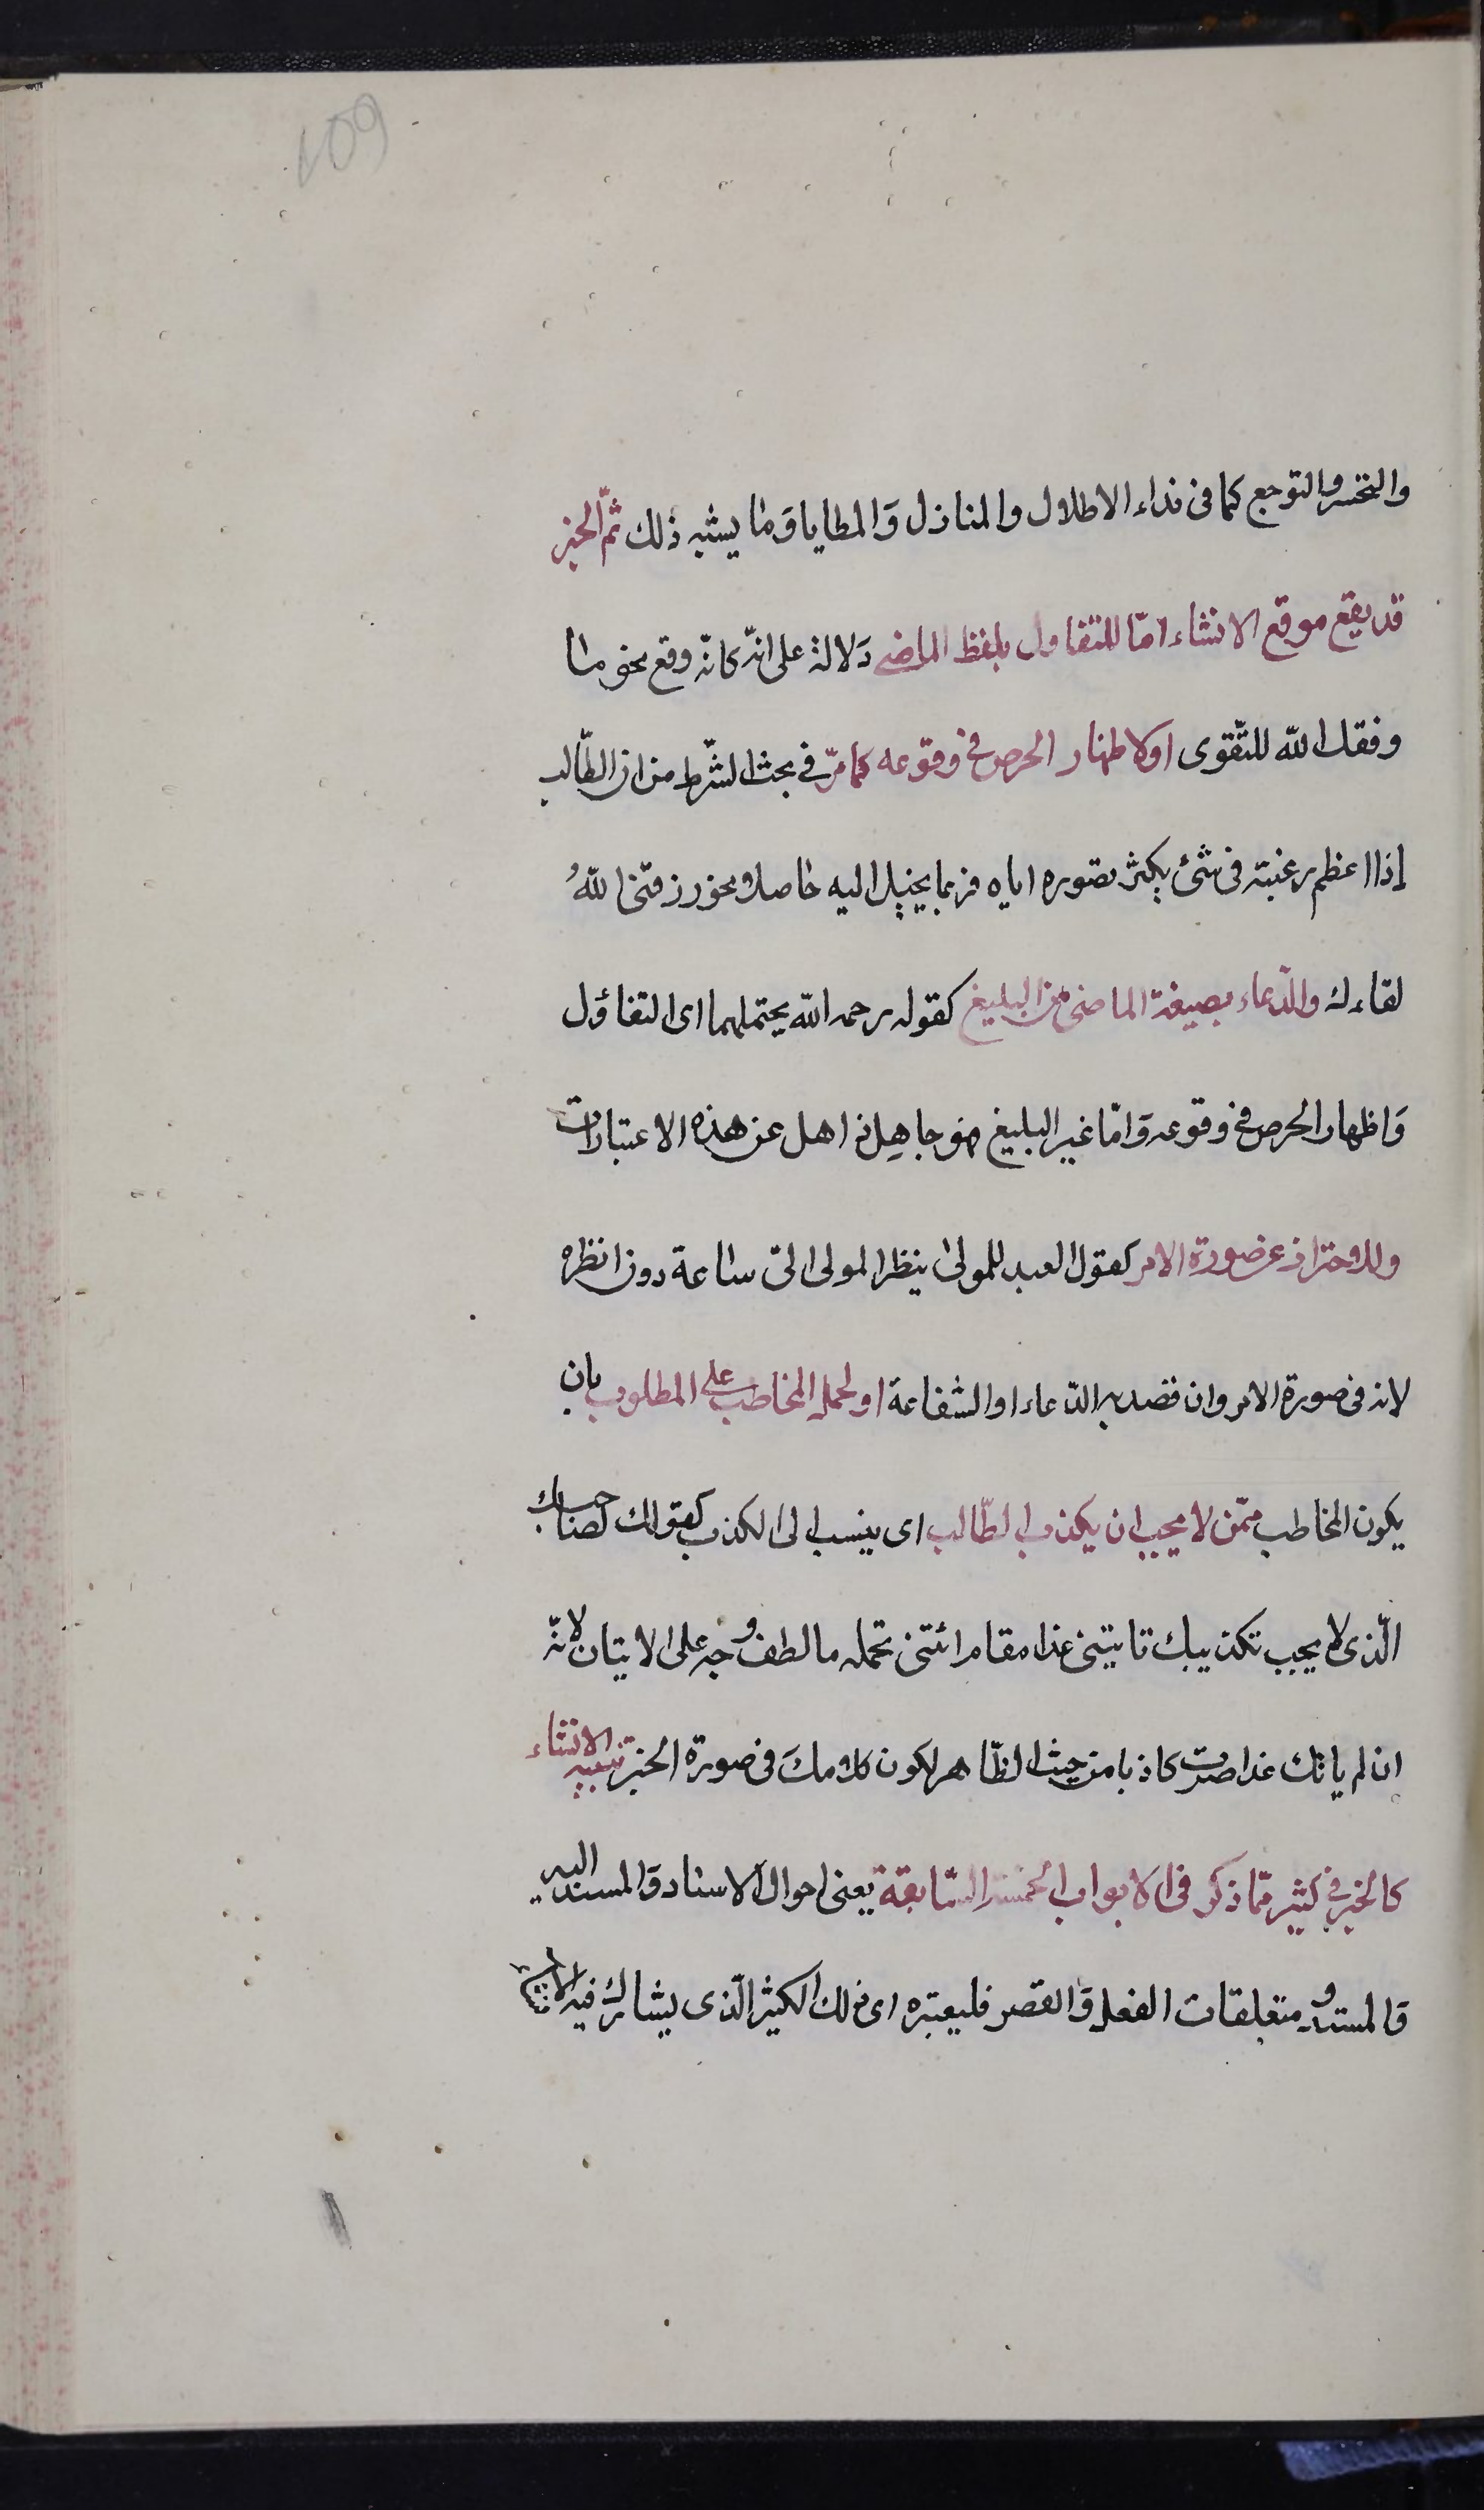 109
والتحسر والتوجع كما فى نداء الاطلال والمنازل وَالمطايا وَما يشبه ذلك ثمّ الخبر
قد يقع موقع الانشاء امّا للتفاول بلفظ الماضى دَلالة على انّه كانّه وقع نحو ما
وفقك الله للتّقوى اولاظهار الحرص فى وقوعه كما مرّ فى بحث الشّرط من ان الطّالب
إذا اعظم رغبته فى شئ يكثر تصوره اياه فربما يخيل اليه حاصلا نحو رزقنى اللهُ
لقاءك والدّعاء بصيغة الماضى من البليغ كقوله رحمه الله يحتملهما اى التفاؤل
وَاظهار الحرص فى وقوعه وَامّا غير البليغ فهو جاهِل ذاهل عن هذه الاعتبارات
وللاحتراز عن صورة الامر كقول العبد للمولى ينظر المولى الىّ ساعة دون انظره
لانه فى صورة الامر وان قصد به الدّعاء او الشفاعة او لحمل المخاطب على المطلوب بان
يكون المخاطب ممّن لا يحب ان يكذب الطّالب اى ينسب الى الكذب كقولك لصاحبك
الّذى لا يحب تكذيبك تاتينى غذا مقام ائتنى تحمله مالطف وجه على الاتيان لانّه
ان لم ياتك غدا صرت كاذبا من حيث الظّاهر لكون كلامك فى صورة الخبر تنبيه الانشاء
كالخبر فى كثير ممّا ذكر فى الابواب الخمسة السّابقة يعنى احوال الاسناد وَالمسند اليه
وَالمسند و متعلقات الفعل وَالقصر فليعتبره اى ذلك الكثير الّذى يشارك فيه